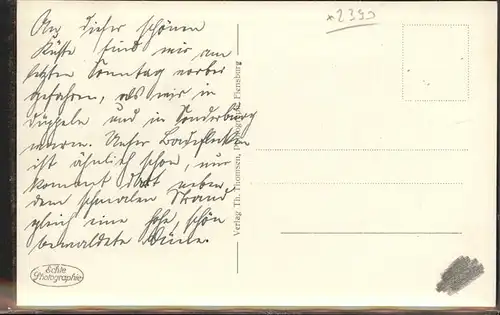 An dieser schönen
Küste sind wir am
letzten Sonntag vorbei
gefahren, als wir in
Düppeln und in Sonderburg
waren. Unser
ist ähnlich schön, nur
kommt dort neben
dem schmalen Strand
gleich eine hohe, schön
bewaldete Düne.
Echte
Photographie
Verlag Th. Thomsen, Flensburg
2399